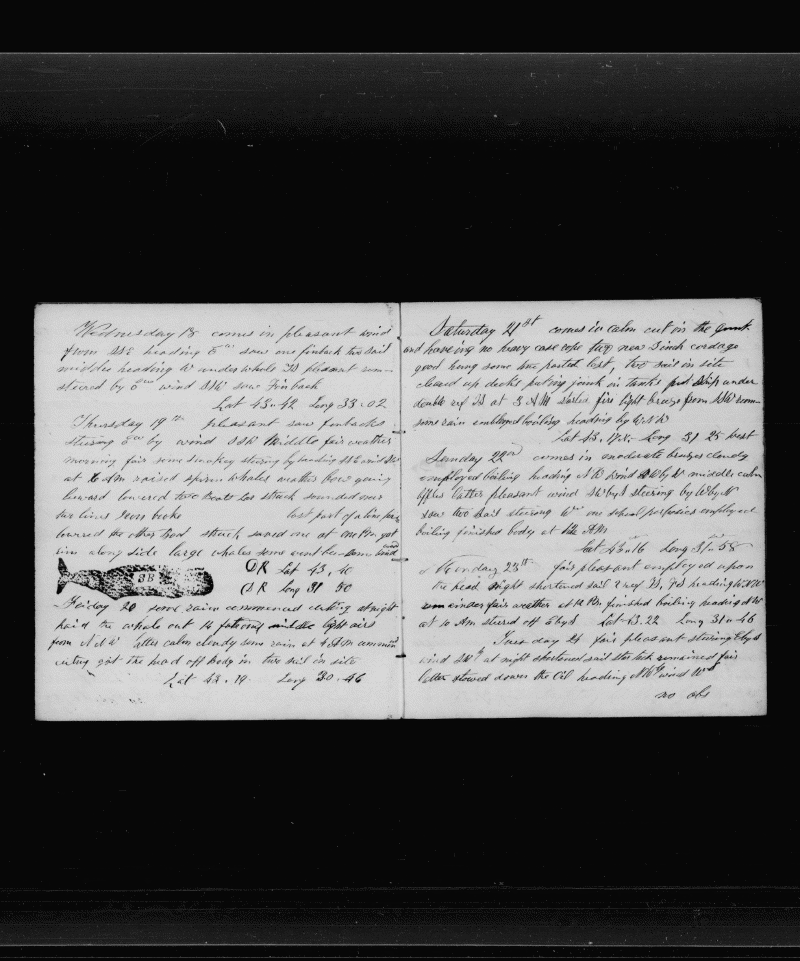 Wednesday 18 comes in pleasant wind
from SSE heading Eer saw one finback two sail
middle heading W under whole TS pleasant
steered by Ern wind SSW saw Finback
Lat 43.42 Long 33.02
Thursday 19th pleasant saw finbacks
steering Ern by wind SSW Middle fair weather
morning fair some smokey steering by heading SSE wind SW
at Am raised sperm whales weather bow going
leward lowered two boats Lar struck sounded over
two lines Iron broke last part of a line
lowered the other Boat struck saved one at one Pm got
him along side large whales some went
wind
3B DR Lat 43.40
DR Long 31 50
Friday 20 some rain commenced cuting at night
had the whale out 14 light airs
from latter calm cloudy some rain at 4 Am
cuting got the head off body in two sail in site
Lat 43.19 Long 30.46
Saturday 21st comes in calm cut in the junk
and haveing no heavy case rope two new 3 inch cordage
good being some parted lost, two sail in site
cleared up decks puting junk in tanks under
double reef TS at 3 A M started fire light breeze from SSW
some rain employed boiling heading by
Lat 43. Long 31 25 west
Sunday 22nd comes in moderate breezes cloudy
employed boiling heading N W wind W by W middle calm
latter pleasant wind SW by S steering by W by N
saw two sail steering Wrn one school porpoises employed
boiling finished body at Am
Lat 43.16 Long 31.58
Monday 23th fair pleasant employed upon
the head night shortened sail 2 reef TS, heading
fair weather at 12 Pm finished boiling heading N W
at 10 Am steered off Lat 43.22 Long 31.46
Tuesday 24 fair pleasant steering
wind at night shortened sail remained fair
latter stowed down the Oil heading wind
no obs